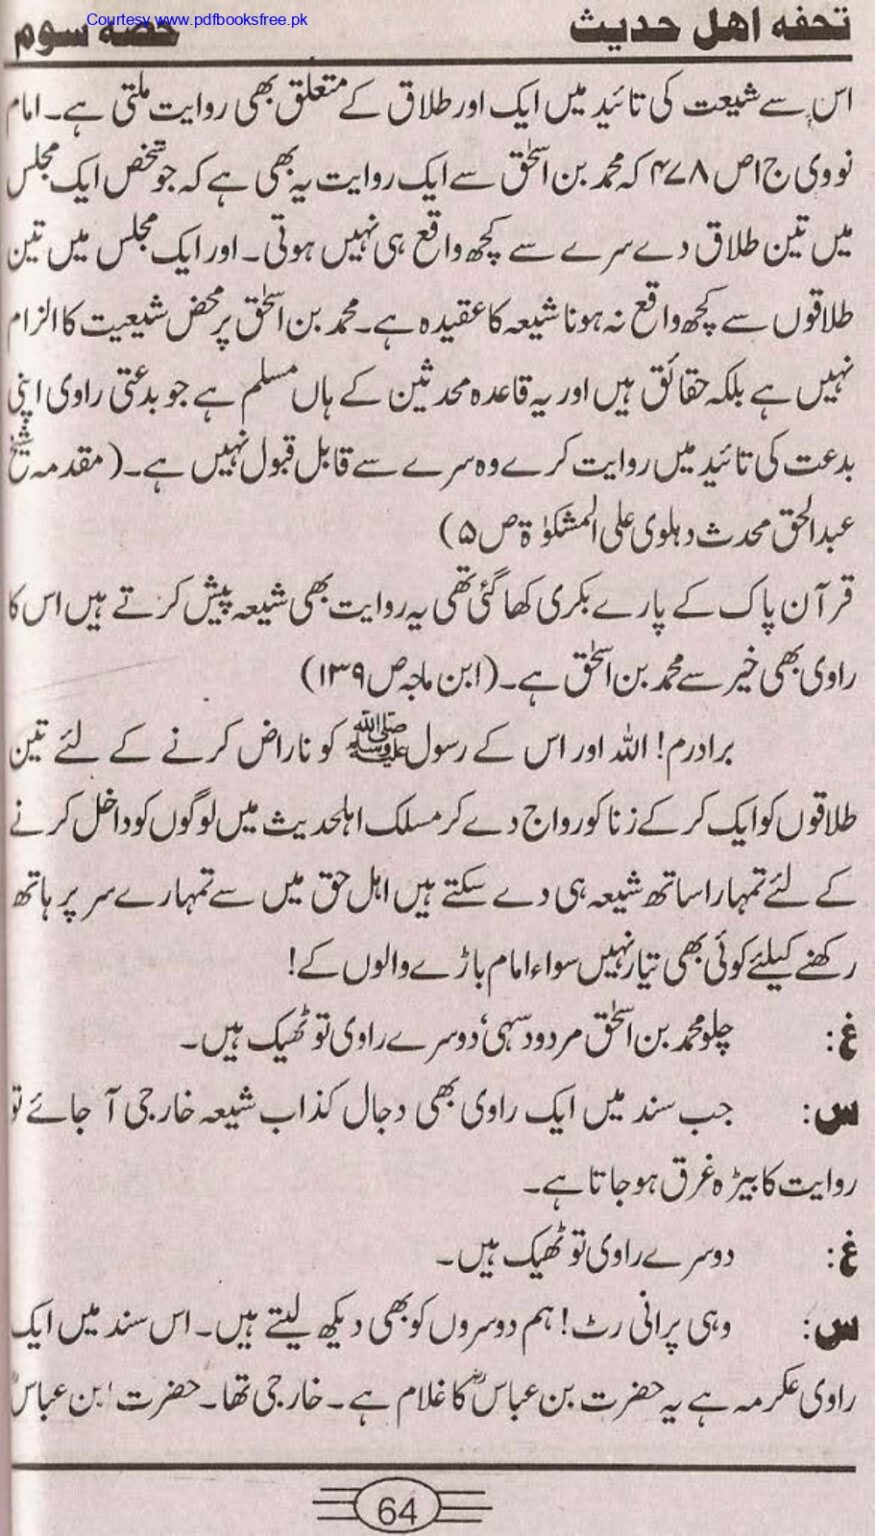 Courtesy www.pdfbooksfree.pk
تحفہ اهل حدیث حصه سوم
اس سے شیعت کی تائید میں ایک اور طلاق کے متعلق بھی روایت ملتی ہے۔ امام
نووی ج۱ص ۴۷۸ کہ محمد بن اسحٰق سے ایک روایت یہ بھی ہے کہ جو شخص ایک مجلس
میں تین طلاق دے سرے سے کچھ واقع ہی نہیں ہوتی۔ اور ایک مجلس میں تین
طلاقوں سے کچھ واقع نہ ہونا شیعہ کا عقیدہ ہے۔ محمد بن اسحٰق پر محض شیعیت کا الزام
نہیں ہے بلکہ حقائق ہیں اور یہ قاعدہ محدثین کے ہاں مسلم ہے جو بدعتی راوی اپنی
بدعت کی تائید میں روایت کرے وہ سرے سے قابل قبول نہیں ہے۔ (مقدمہ شیخ
عبدالحق محدث دہلوی علی المشکوٰۃ ص ۵)
قرآن پاک کے پارے بکری کھا گئی تھی یہ روایت بھی شیعہ پیش کرتے ہیں اس کا
راوی بھی خیر سے محمد بن اسحٰق ہے۔ (ابن ماجہ ص ۱۳۹)
برادرم! اللہ اور اس کے رسول ﷺ کو ناراض کرنے کے لئے تین
طلاقوں کو ایک کر کے زنا کو رواج دے کر مسلک اہلحدیث میں لوگوں کو داخل کرنے
کے لئے تمہارا ساتھ شیعہ ہی دے سکتے ہیں اہل حق میں سے تمہارے سر پر ہاتھ
رکھنے کیلئے کوئی بھی تیار نہیں سواء امام باڑے والوں کے!
غ: چلو محمد بن اسحٰق مردود سہی٬ دوسرے راوی تو ٹھیک ہیں۔
س: جب سند میں ایک راوی بھی دجال کذاب شیعہ خارجی آ جائے تو
روایت کا بیڑہ غرق ہو جاتا ہے۔
غ: دوسرے راوی تو ٹھیک ہیں۔
س: وہی پرانی رٹ! ہم دوسروں کو بھی دیکھ لیتے ہیں۔ اس سند میں ایک
راوی عکرمہ ہے یہ حضرت بن عباسؓ کا غلام ہے۔ خارجی تھا۔ حضرت ابن عباسؓ
64